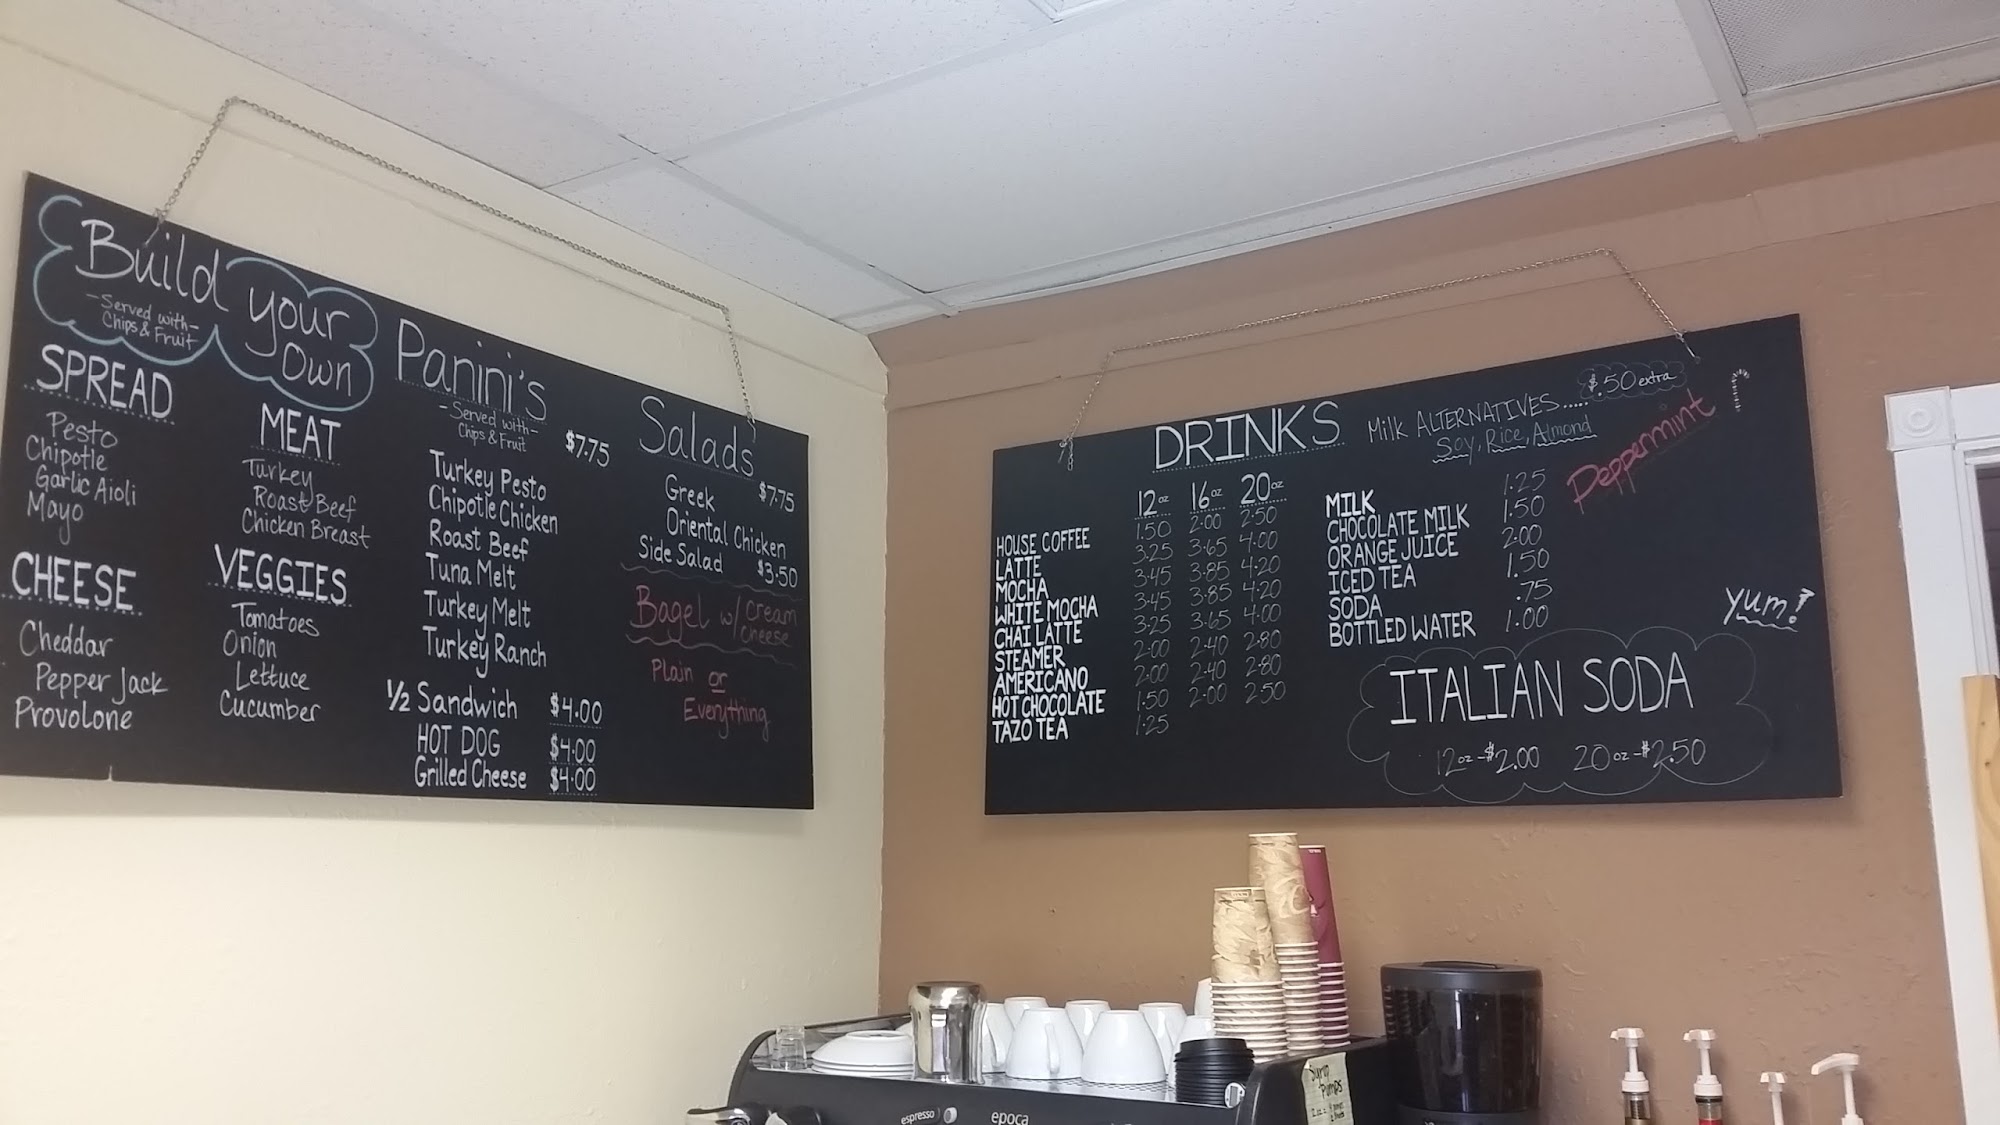 Build your Own
-Served with-
Chips & Fruit
SPREAD
Pesto
Chipotle
Garlic Aioli
Mayo
CHEESE
Cheddar
Pepper Jack
Provolone
MEAT
Turkey
Roast Beef
Chicken Breast
VEGGIES
Tomatoes
Onion
Lettuce
Cucumber
Panini's
-Served with-
Chips & Fruit
$7.75
Turkey Pesto
Chipotle Chicken
Roast Beef
Tuna Melt
Turkey Melt
Turkey Ranch
1/2 Sandwich $4.00
HOT DOG $4.00
Grilled Cheese $4.00
Salads
Greek $7.75
Oriental Chicken
Side Salad $3.50
Bagel w/ cream cheese
Plain or
Everything
DRINKS
Milk ALTERNATIVES..... $.50 extra
Soy, Rice, Almond
Peppermint
12oz 16oz 20oz
HOUSE COFFEE 1.50 2.00 2.50
LATTE 3.25 3.65 4.00
MOCHA 3.45 3.85 4.20
WHITE MOCHA 3.45 3.85 4.20
CHAI LATTE 3.25 3.65 4.00
STEAMER 2.00 2.40 2.80
AMERICANO 2.00 2.40 2.80
HOT CHOCOLATE 1.50 2.00 2.50
TAZO TEA 1.25
MILK 1.25
CHOCOLATE MILK 1.50
ORANGE JUICE 2.00
ICED TEA 1.50
SODA .75
BOTTLED WATER 1.00
yum!
ITALIAN SODA
12oz-$2.00 20oz-$2.50
espresso
epoca
Syrup
Pumps